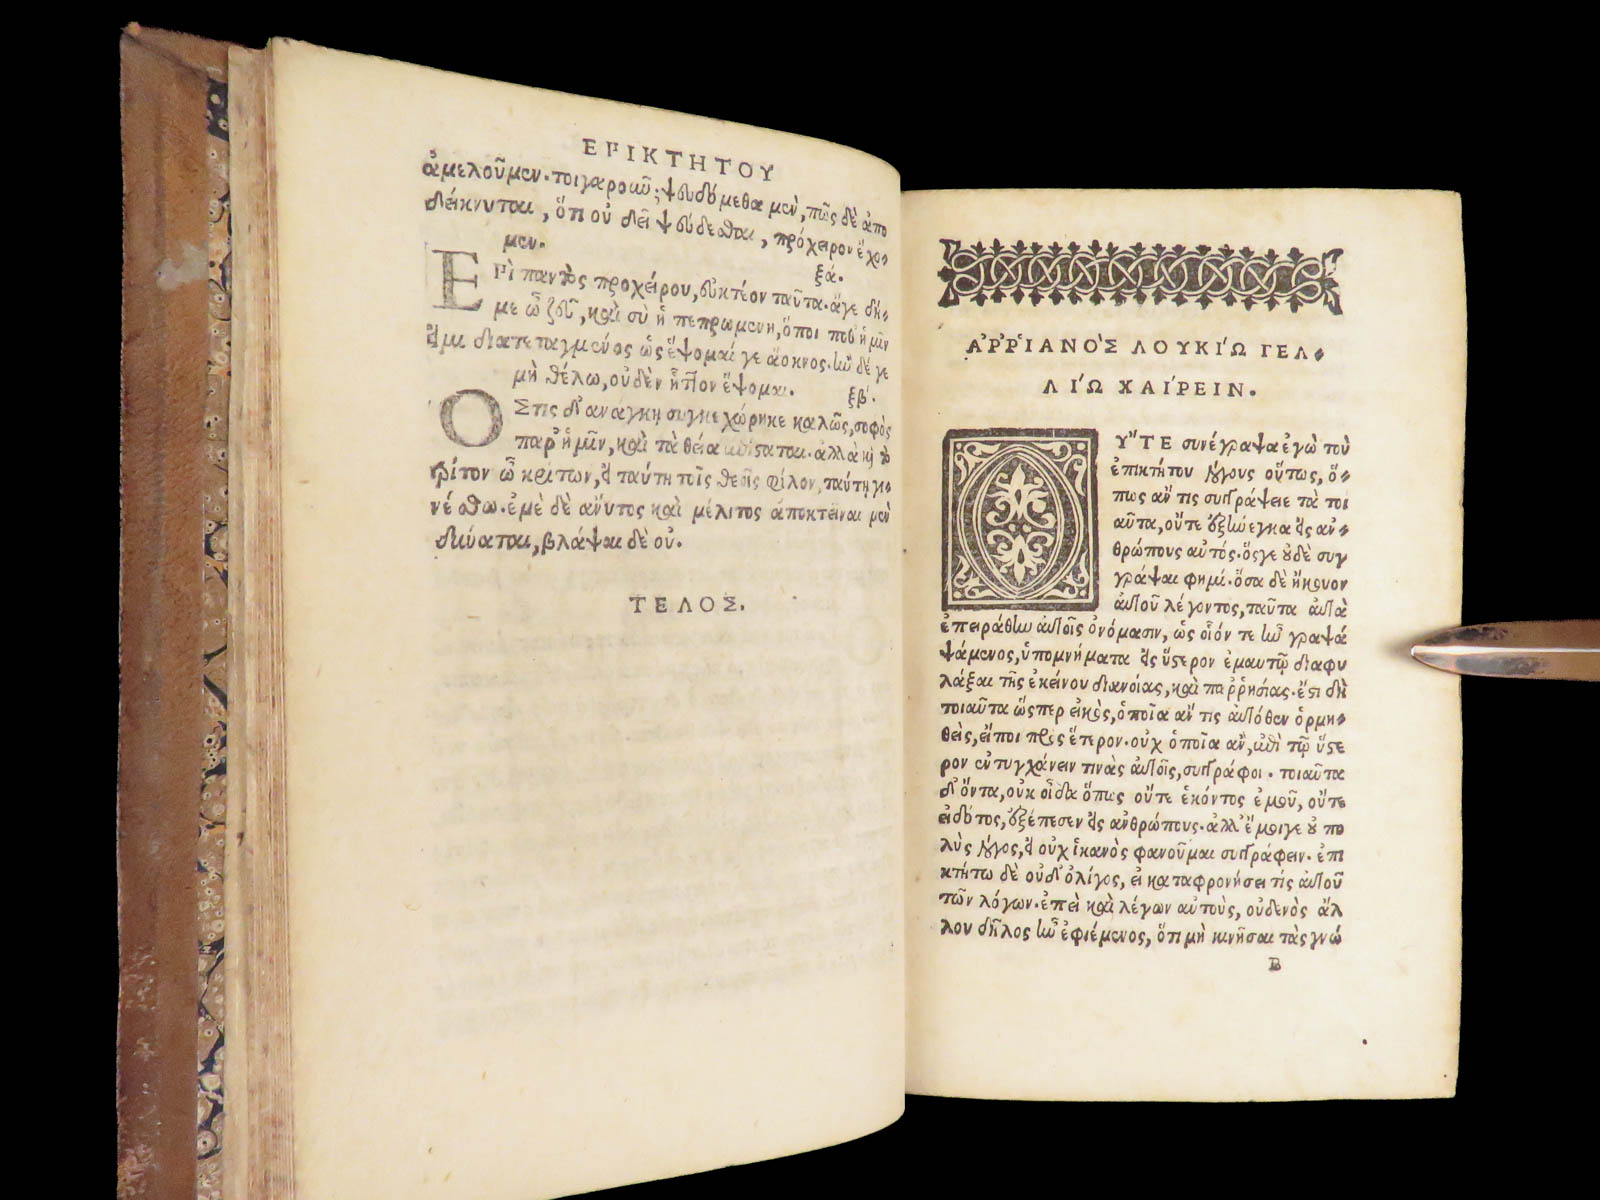 ΕΡΙΚΤΗΤΟΥ
ἀμελοῦμεν. τοιγαροῦν, ψευδόμεθα μὲν, πῶς δὲ ἀπο
δείκνυται, ὅτι οὐ δεῖ ψεύδεσθαι, πρόχειρον ἔχο-
μεν.
ξά.
ΕΡὶ παντὸς προχείρου, εὐκτέον ταῦτα. ἄγε δή-
με ὦ ζεῦ, καὶ σὺ ἡ πεπρωμένη, ὅποι ποθ' ἡμῖν
εἰμι διατεταγμένος ὡς ἕψομαί γε ἄοκνος. ἢν δέ γε
μὴ θέλω, οὐδὲν ἧττον ἕψομαι.
ξβ'.
ΟΣτις δ' ἀνάγκῃ συγκεχώρηκε καλῶς, σοφὸς
παρ' ἡμῖν, καὶ τὰ θεῖα ἐπίσταται. ἀλλὰ καὶ τὸ
τρίτον ὦ κρίτων, εἰ ταύτῃ τοῖς θεοῖς φίλον, ταύτῃ γι-
νέσθω. ἐμὲ δὲ ἄνυτος καὶ μέλιτος ἀποκτεῖναι μὲν
δύναται, βλάψαι δὲ οὔ.
ΤΕΛΟΣ.
ἈΡῬΙΑΝῸΣ ΛΟΥΚΊΩ ΓΕΛ-
ΛΊΩ ΧΑΊΡΕΙΝ.
ΟΥ῎ΤΕ συνέγραψα ἐγὼ τοὺ
ἐπικτήτου λόγους οὕτως, ὅ-
πως ἄν τις συγγράψειε τὰ τοι
αῦτα, οὔτε ἐξήνεγκα εἰς ἀν-
θρώπους αὐτός. ὅς γε οὐδὲ συγ
γράψαι φημί. ὅσα δὲ ἤκουον
αὐτοῦ λέγοντος, ταῦτα αὐτὰ
ἐπειράθην αὐτοῖς ὀνόμασιν, ὡς οἷόν τε ἦν γραψά
ψάμενος, ὑπομνήματα εἰς ὕστερον ἐμαυτῷ διαφυ
λάξαι τῆς ἐκείνου διανοίας, καὶ παῤῥησίας. ἔστι δὴ
τοιαῦτα ὥσπερ εἰκὸς, ὁποῖα ἄν τις αὐτόθεν ὁρμη-
θεὶς, εἴποι πρὸς ἕτερον. οὐχ ὁποῖα ἂν, ἐπὶ τῷ ὕστε
ρον ἐντυγχάνειν τινὰς αὐτοῖς, συγγράφοι. τοιαῦτα
δ' ὄντα, οὐκ οἶδα ὅπως οὔτε ἑκόντος ἐμοῦ, οὔτε
εἰδότος, ἐξέπεσεν εἰς ἀνθρώπους. ἀλλ' ἔμοιγε οὐ πο
λὺς λόγος, εἰ οὐχ ἱκανὸς φανοῦμαι συγγράφειν. ἐπι
κτήτῳ δὲ οὐδ' ὀλίγος, εἰ καταφρονήσει τίς αὐτοῦ
τῶν λόγων. ἐπεὶ καὶ λέγων αὐτοὺς, οὐδενὸς ἄλ
λου δῆλος ἦν ἐφιέμενος, ὅτι μὴ κινῆσαι τὰς γνώ
B